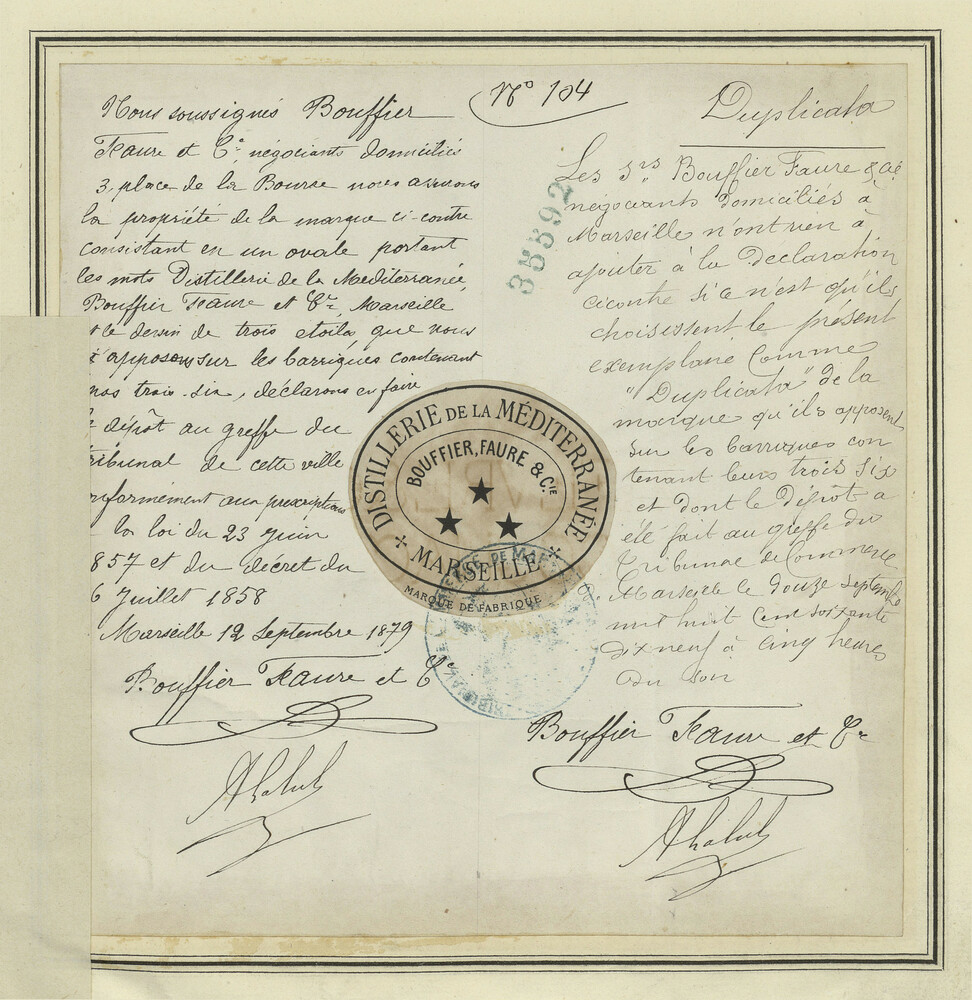 Nº 104
Nous soussignés Bouffier
Faure et Cie, négociants domiciliés
3, place de la Bourse nous assurons
la propriété de la marque ci-contre
consistant en un ovale portant
les mots Distillerie de la Mediterranée,
Bouffier Faure et Cie, Marseille
le dessin de trois etoiles, que nous
apposons sur les barriques contenant
nos trois-six, déclarons en faire
dépôt au greffe du
ribunal de cette ville
nformément aux prescriptions
la loi du 23 juin
857 et du décret du
6 Juillet 1858
Marseille 12 Septembre 1879
Bouffier Faure et Cie
Duplicata
Les Srs Bouffier Faure & Cie
négociants domiciliés à
Marseille n'ont rien à
ajouter à la Déclaration
cicontre si ce n'est qu'ils
choisissent le présent
exemplaire comme
"Duplicata" de la
marque qu'ils apposent
sur les barriques con
tenant leurs trois six
et dont le Dépôt a
été fait au greffe du
Tribunal de Commerce
Marseille le Douze Septembre
mil huit cent soixante
dix neuf à cinq heures
du soir
Bouffier Faure et Cie
35592
DISTILLERIE DE LA MÉDITERRANÉE
BOUFFIER, FAURE & CIE
MARSEILLE
MARQUE DE FABRIQUE